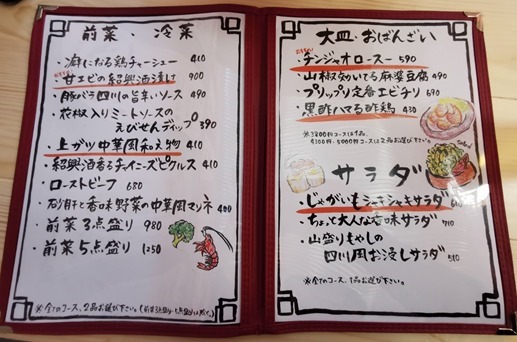 前菜・冷菜
・麻になる鶏チャーシュー 410
・甘エビの紹興酒漬け 900
・豚バラ四川の旨辛いソース 490
・花椒入りミートソースの
えびせんディップ 390
・上ガツ中華風和え物 410
・紹興酒香るチャイニーズピクルス 410
・ローストビーフ 680
・砂肝と香味野菜の中華風マリネ
・前菜3点盛り 980
・前菜5点盛り 1250
※全てのコース、2品お選び下さい。
大皿・おばんざい
・チンジャオロースー 590
・山椒効いてる麻婆豆腐 490
・プリップリ定番エビチリ 690
・黒酢ハマる酢鶏 430
サラダ
Salad
・じゃがいもシャキシャキサラダ
・ちょっと大人な香味サラダ 710
・山盛りもやしの
四川風お浸しサラダ 510
※全てのコース、1品お選び下さい。